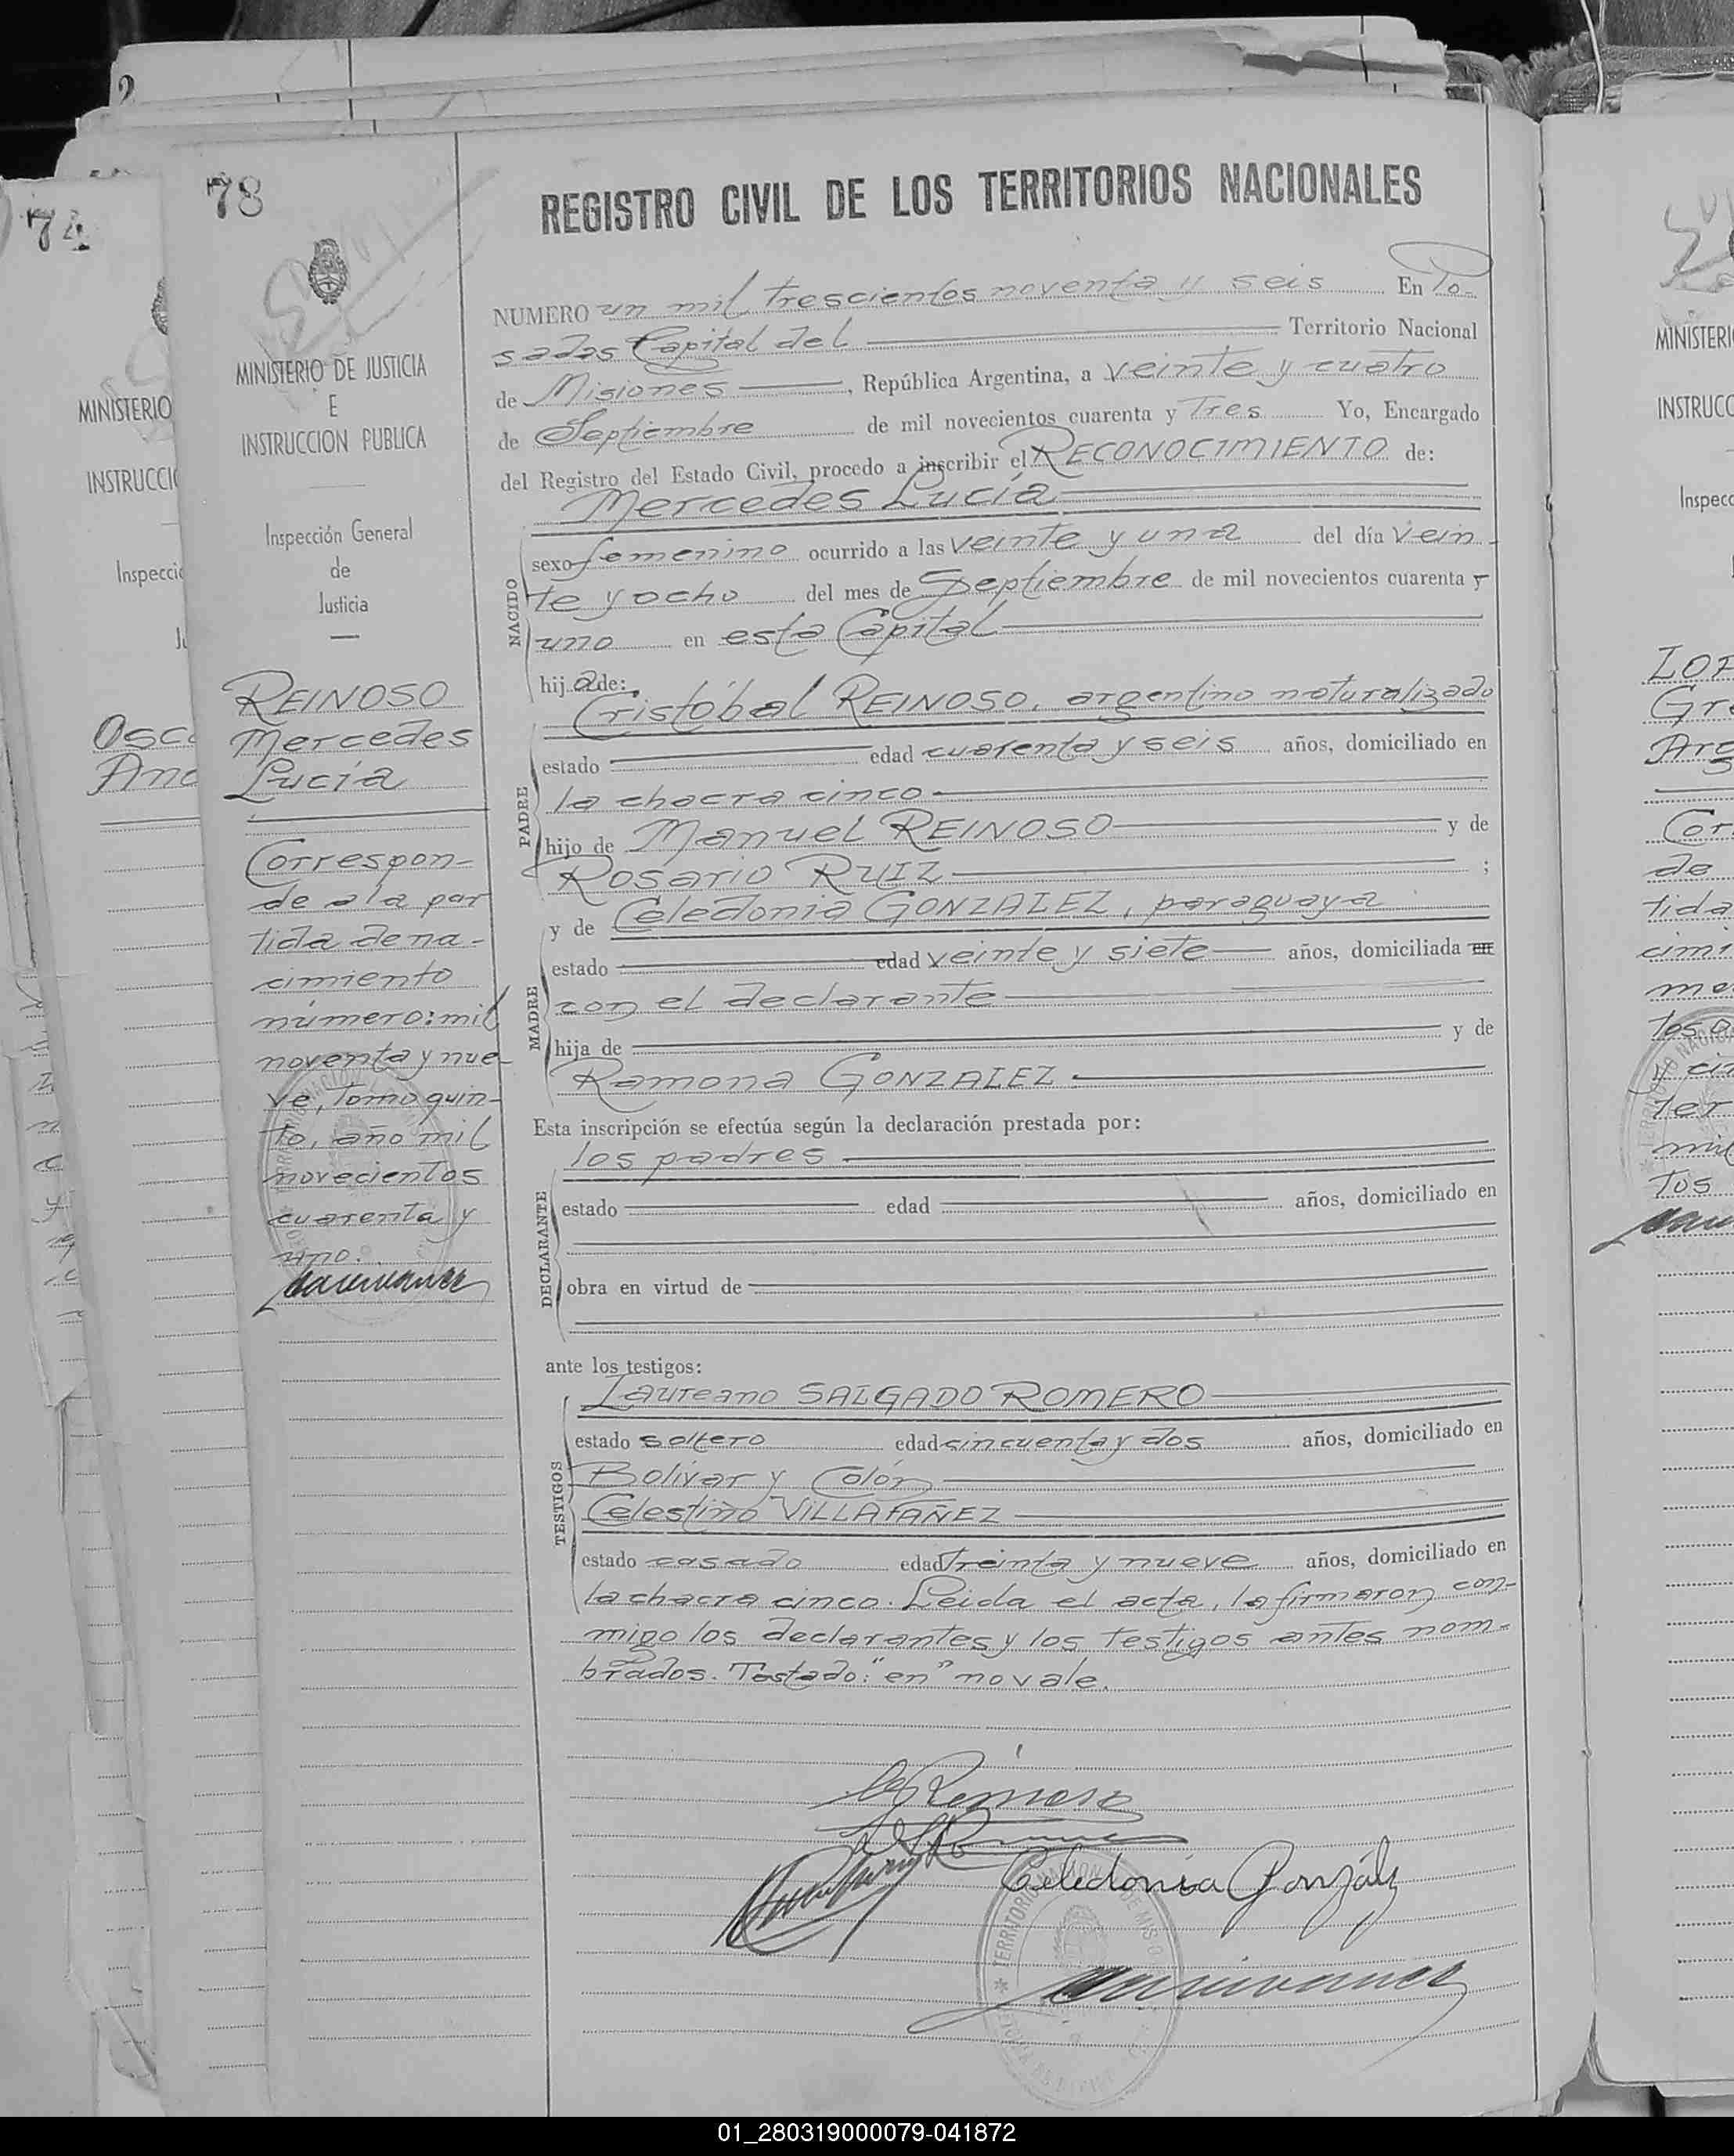 2
74
MINISTERIO
INSTRUCCI
Inspecci
Osc
Ana
78
MINISTERIO DE JUSTICIA
E
INSTRUCCION PUBLICA
Inspección General
de
Justicia
REINOSO
Mercedes
Lucía
Correspon-
de a la par
tida de na-
cimiento
número: mil
noventa y nue-
ve, Tomo quin-
to, año mil
novecientos
cuarenta y
uno.
REGISTRO CIVIL DE LOS TERRITORIOS NACIONALES
NUMERO un mil trescientos noventa y seis En Po-
sadas Capital del Territorio Nacional
de Misiones, República Argentina, a veinte y cuatro
de Septiembre de mil novecientos cuarenta y Tres Yo, Encargado
del Registro del Estado Civil, procedo a inscribir el RECONOCIMIENTO de:
Mercedes Lucía
NACIDO
sexo femenino ocurrido a las veinte y una del día Vein-
te y ocho del mes de Septiembre de mil novecientos cuarenta y
uno en esta Capital
hija de:
PADRE
Cristóbal REINOSO, argentino naturalizado
estado edad cuarenta y seis años, domiciliado en
la chacra cinco
hijo de Manuel REINOSO y de
Rosario RUIZ ;
MADRE
y de Celedonia GONZALEZ, paraguaya
estado edad veinte y siete años, domiciliada en
con el declarante
hija de y de
Ramona GONZALEZ.
Esta inscripción se efectúa según la declaración prestada por:
DECLARANTE
los padres
estado edad años, domiciliado en
obra en virtud de
ante los testigos:
TESTIGOS
Laureano SALGADO ROMERO
estado soltero edad cincuenta y dos años, domiciliado en
Bolívar y Colón
Celestino VILLAFAÑEZ
estado casado edad treinta y nueve años, domiciliado en
la chacra cinco. Leida el acta, la firmaron con-
migo los declarantes y los testigos antes nom-
brados. Tastado: "en" no vale.
Celedonia Gonzálz
TERRITORIO NACION DE MIS
MINISTERI
INSTRUCC
Inspecc
LOP
Gre
Ara
Cor
de
tida
cimi
me
tos
y ci
ter
mil
Tos
01_280319000079-041872